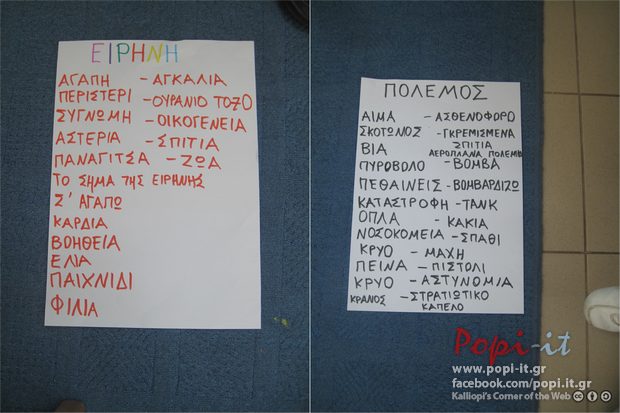 ΕΙΡΗΝΗ
ΑΓΑΠΗ - ΑΓΚΑΛΙΑ
ΠΕΡΙΣΤΕΡΙ - ΟΥΡΑΝΙΟ ΤΟΞΟ
ΣΥΓΝΩΜΗ - ΟΙΚΟΓΕΝΕΙΑ
ΑΣΤΕΡΙΑ - ΣΠΙΤΙΑ
ΠΑΝΑΓΙΤΣΑ - ΖΩΑ
ΤΟ ΣΗΜΑ ΤΗΣ ΕΙΡΗΝΗΣ
Σ' ΑΓΑΠΩ
ΚΑΡΔΙΑ
ΒΟΗΘΕΙΑ
ΕΛΙΑ
ΠΑΙΧΝΙΔΙ
ΦΙΛΙΑ
ΠΟΛΕΜΟΣ
ΑΙΜΑ - ΑΣΘΕΝΟΦΟΡΟ
ΣΚΟΤΩΜΟΣ - ΓΚΡΕΜΙΣΜΕΝΑ
ΣΠΙΤΙΑ
ΒΙΑ ΑΕΡΟΠΛΑΝΑ ΠΟΛΕΜΙΚ
ΠΥΡΟΒΟΛΟ - ΒΟΜΒΑ
ΠΕΘΑΙΝΕΙΣ - ΒΟΜΒΑΡΔΙΖΩ
ΚΑΤΑΣΤΡΟΦΗ - ΤΑΝΚ
ΟΠΛΑ - ΚΑΚΙΑ
ΝΟΣΟΚΟΜΕΙΑ - ΣΠΑΘΙ
ΚΡΥΟ - ΜΑΧΗ
ΠΕΙΝΑ - ΠΙΣΤΟΛΙ
ΚΡΥΟ - ΑΣΤΥΝΟΜΙΑ
ΚΡΑΝΟΣ - ΣΤΡΑΤΙΩΤΙΚΟ
ΚΑΠΕΛΟ
Popi-it
www.popi-it.gr
facebook.com/popi.it.gr
Kalliopi's Corner of the Web